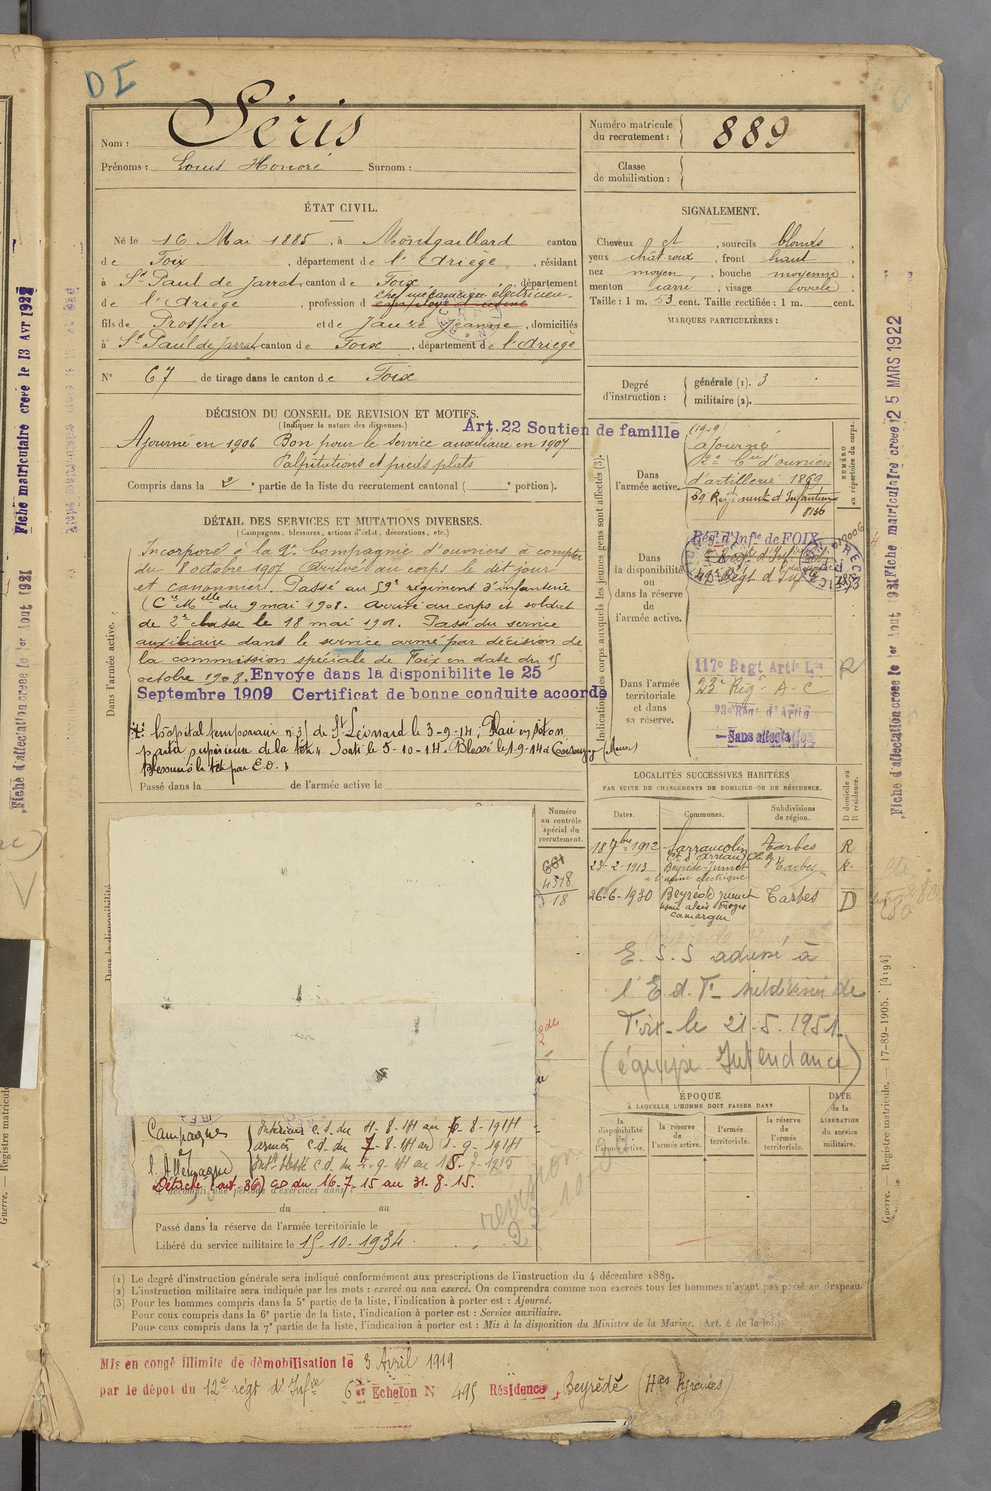 DI
Nom : Séris
Prénoms : Louis Honoré Surnom :
Numéro matricule du recrutement : 889
Classe de mobilisation :
ÉTAT CIVIL.
Né le 16 Mai 1885, à Montgaillard canton
de Foix, département de l'Ariège, résidant
à St Paul de Jarrat canton de Foix, département
de l'Ariège, profession d chef mécanicien électricien
employé d'usine
fils de Prosper et de Jauze Jeanne, domiciliés
à St Paul de Jarrat canton de Foix, département de l'Ariège
N° 67 de tirage dans le canton de Foix
SIGNALEMENT.
Cheveux et, sourcils blonds,
yeux chât roux, front haut,
nez moyen, bouche moyenne,
menton carré, visage ovale,
Taille : 1 m. 53 cent. Taille rectifiée : 1 m. cent.
MARQUES PARTICULIÈRES :
Degré d'instruction : générale (1). 3
militaire (2).
DÉCISION DU CONSEIL DE REVISION ET MOTIFS.
(Indiquer la nature des dispenses.)
Art. 22 Soutien de famille
Ajourné en 1906 Bon pour le service auxiliaire en 1907
Palpitations et pieds plats
Compris dans la 2e partie de la liste du recrutement cantonal ( e portion).
DÉTAIL DES SERVICES ET MUTATIONS DIVERSES.
(Campagnes, blessures, actions d'éclat, décorations, etc.)
Dans l'armée active.
Incorporé à la 2e Compagnie d'ouvriers à compter
du 8 octobre 1907 Arrivé au corps le dit jour
et canonnier. Passé au 59e régiment d'infanterie
(Cn Melle du 9 mai 1908. Arrivé au corps et soldat
de 2e classe le 18 mai 1908. Passé du service
auxiliaire dans le service armé par décision de
la commission spéciale de Foix en date du 15
octobre 1908. Envoye dans la disponibilite le 25
Septembre 1909 Certificat de bonne conduite accorde
hôpital temporaire n° 3 de St Léonard le 3-9-14; Plaie en séton
partie supérieure de la tête. Sorti le 5-10-14. Blessé le 1-9-14 à (Meuse)
Passé dans la de l'armée active le
Indication des corps auxquels les jeunes gens sont affectés (3).
Dans l'armée active.
(1909)
Ajourné
2e Cie d'ouvriers
d'artillerie 1859
59 Régiment d'Infanterie
8136
NUMÉRO au répertoire du corps.
Dans la disponibilité ou dans la réserve de l'armée active.
Rég. d'Infie de FOIX
Dans l'armée territoriale et dans sa réserve.
117e Regt Artie Lde R
23e Régt A-C
23e Régt d'Artie
Sans affectation
LOCALITÉS SUCCESSIVES HABITÉES
PAR SUITE DE CHANGEMENTS DE DOMICILE OU DE RÉSIDENCE.
Dates. Communes. Subdivisions de région. D domicile ou R résidence.
18 7bre 1912 Sarrancolin Tarbes R
23-2-1913 Beyrède-Jumet Tarbes R.
à l'usine électrique
26-6-1930 Beyrède Jumet Tarbes D
usine alais froges
camargue
E. S. S adressé à
l'E. d. T. subdivision de
Foix le 21-5.1951
(équipe Intendance)
Numéro au contrôle spécial du recrutement.
661
4318
18
Dans la disponibilité
Campagnes
l'Allemagne)
Intérieur c.s. du 4-8-14 au 6-8-1914
armées c.d. du 7-8-14 au 1-9-1914
Détaché (art. 36) CS du 16-7-15 au 31-8-15.
du au
Passé dans la réserve de l'armée territoriale le
Libéré du service militaire le 15-10-1934
ÉPOQUE
À LAQUELLE L'HOMME DOIT PASSER DANS
la disponibilité ou la réserve de l'armée active. l'armée territoriale. la réserve de l'armée territoriale.
DATE de la LIBÉRATION du service militaire.
(1) Le degré d'instruction générale sera indiqué conformément aux prescriptions de l'instruction du 4 décembre 1889.
(2) L'instruction militaire sera indiquée par les mots : exercé ou non exercé. On comprendra comme non exercés tous les hommes n'ayant pas passé au drapeau.
(3) Pour les hommes compris dans la 5e partie de la liste, l'indication à porter est : Ajourné.
Pour ceux compris dans la 6e partie de la liste, l'indication à porter est : Service auxiliaire.
Pour ceux compris dans la 7e partie de la liste, l'indication à porter est : Mis à la disposition du Ministre de la Marine. (Art. 4 de la loi.)
Mis en congé illimité de démobilisation le 3 Avril 1919
par le dépot du 12e régt d'Infie 6e Echelon N° 495 Résidence Beyrède (Htes Pyrénées)
Fiche matriculaire creée le 13 AVR 1922
Fiche d'affectation creée le 1er Aout 1921
Fiche matriculaire creée le 25 MARS 1922
Fiche d'affectation creée le 1er Aout 1921
Guerre. — Registre matricule. — 17-89-1905. [4194]
Guerre. — Registre matricule